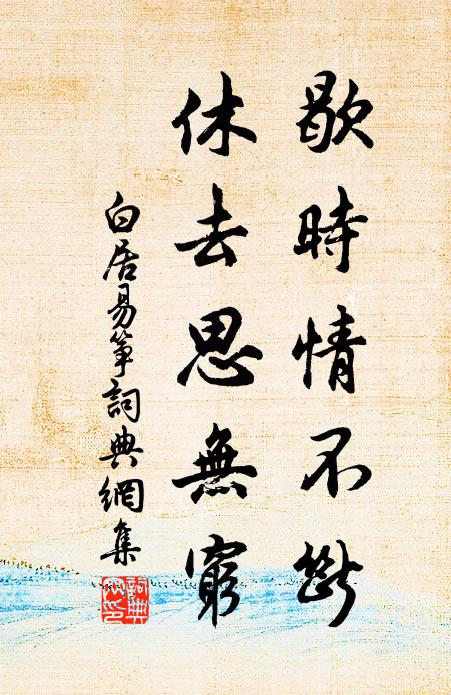 歇時情不斷
休去思無窮
白居易箏詞典網集